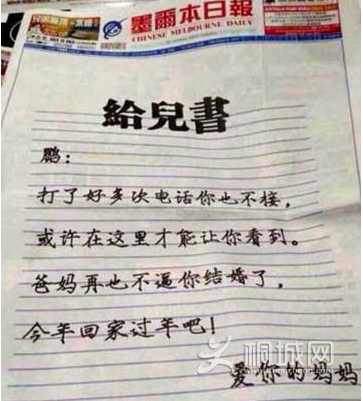 墨爾本日報
CHINESE MELBOURNE DAILY
給兒書
鹏：
打了好多次电话你也不接，
或许在这里才能让你看到。
爸妈再也不逼你结婚了，
今年回家过年吧！
爱你的妈妈
桐城网